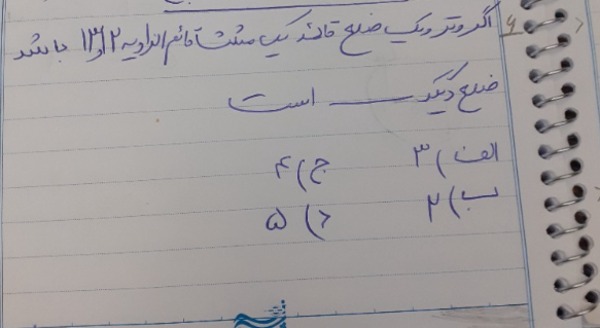 ۶ اگر وتر و یک ضلع قائمه یک مثلث قائم الزاویه ۱۲ و ۱۳ باشد
ضلع دیگر ــــــ است
الف) ۳ ج) ۴
ب) ۲ د) ۵